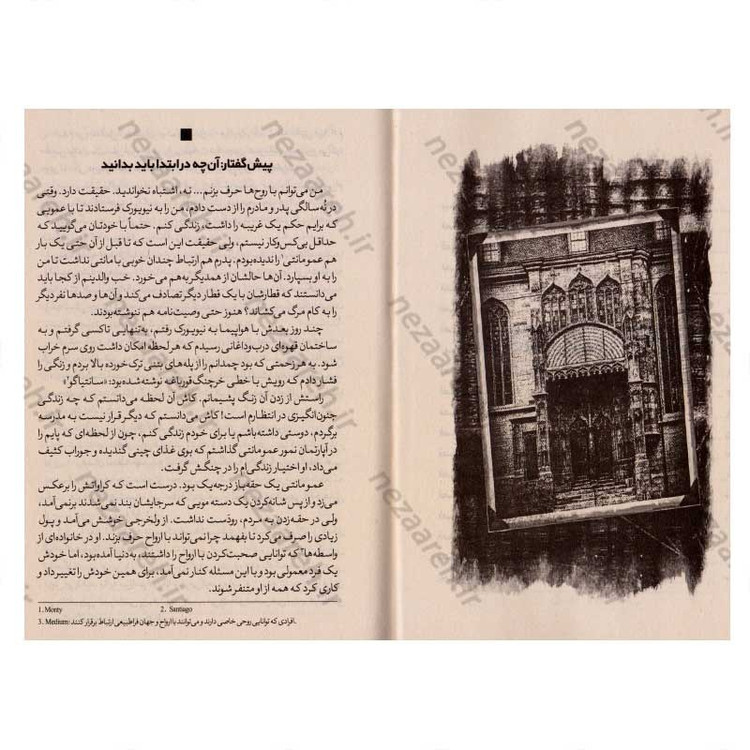 ■
پیش‌گفتار: آن‌چه در ابتدا باید بدانید
من می‌توانم با روح‌ها حرف بزنم... نه، اشتباه نخواندید. حقیقت دارد. وقتی
در نُه سالگی پدر و مادرم را از دست دادم، من را به نیویورک فرستادند تا با عمویی
که برایم حکم یک غریبه را داشت، زندگی کنم. حتماً با خودتان می‌گویید که
حداقل بی‌کس‌وکار نیستم، ولی حقیقت این است که تا قبل از آن حتی یک بار
هم عمو مانتی۱ را ندیده بودم. پدرم هم ارتباط چندان خوبی با مانتی نداشت تا من
را به او بسپارد. آن‌ها حالشان از همدیگر به‌هم می‌خورد. خب والدینم از کجا باید
می‌دانستند که قطارشان با یک قطار دیگر تصادف می‌کند و آن‌ها و صدها نفر دیگر
را به کام مرگ می‌کشاند؟ هنوز حتی وصیت‌نامه هم ننوشته بودند.
چند روز بعدش با هواپیما به نیویورک رفتم، به‌تنهایی تاکسی گرفتم و به
ساختمان قهوه‌ای درب‌وداغانی رسیدم که هر لحظه امکان داشت روی سرم خراب
شود. به هر زحمتی که بود چمدانم را از پله‌های بتنی ترک‌خورده بالا بردم و زنگی را
فشار دادم که رویش با خطی خرچنگ قورباغه نوشته شده بود: «سانتیاگو۲»
راستش از زدن آن زنگ پشیمانم. کاش آن لحظه می‌دانستم که چه زندگی
جنون‌انگیزی در انتظارم است! کاش می‌دانستم که دیگر قرار نیست به مدرسه
برگردم، دوستی داشته باشم یا برای خودم زندگی کنم، چون از لحظه‌ای که پایم را
در آپارتمان نمور عمو مانتی گذاشتم که بوی غذای چینی گندیده و جوراب کثیف
می‌داد، او اختیار زندگی‌ام را در چنگش گرفت.
عمو مانتی یک حقه‌باز درجه‌یک بود. درست است که کراواتش را برعکس
می‌زد و از پس شانه‌کردن یک دسته مویی که سرجایشان بند نمی‌شدند برنمی‌آمد،
ولی در حقه‌زدن به مردم، رودَست نداشت. از ولخرجی خوشش می‌آمد و پول
زیادی را صرف می‌کرد تا بفهمد چرا نمی‌تواند با ارواح حرف بزند. او در خانواده‌ای از
واسطه‌ها۳ که توانایی صحبت‌کردن با ارواح را داشتند، به‌دنیا آمده بود، اما خودش
یک فرد معمولی بود و با این مسئله کنار نمی‌آمد، برای همین خودش را تغییر داد و
کاری کرد که همه از او متنفر شوند.
1. Monty 2. Santiago
3. Medium: افرادی که توانایی روحی خاصی دارند و می‌توانند با ارواح و جهان فراطبیعی ارتباط برقرار کنند.
nezaareh.ir